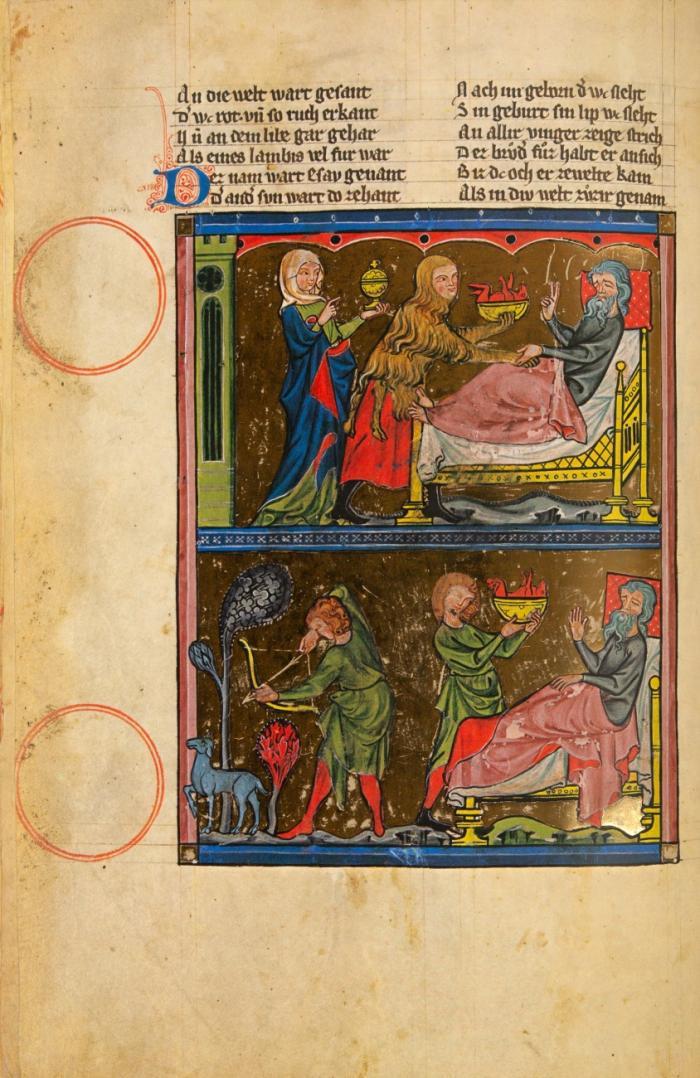 An die welt wart gesant
d' wc rot. vn̄ so ruch erkant
vn̄ an dem libe gar gehar
Als eines lambis vel fur war
Der nam wart esav genant
d' and' svn wart do zehant
Nach im geborn d' wc sleht
Sin geburt sin lip wc sleht
An allir vinger zeige strich
Der brůd' für habt er an sich
Biz dc och er zewelte kam
Als in diw welt